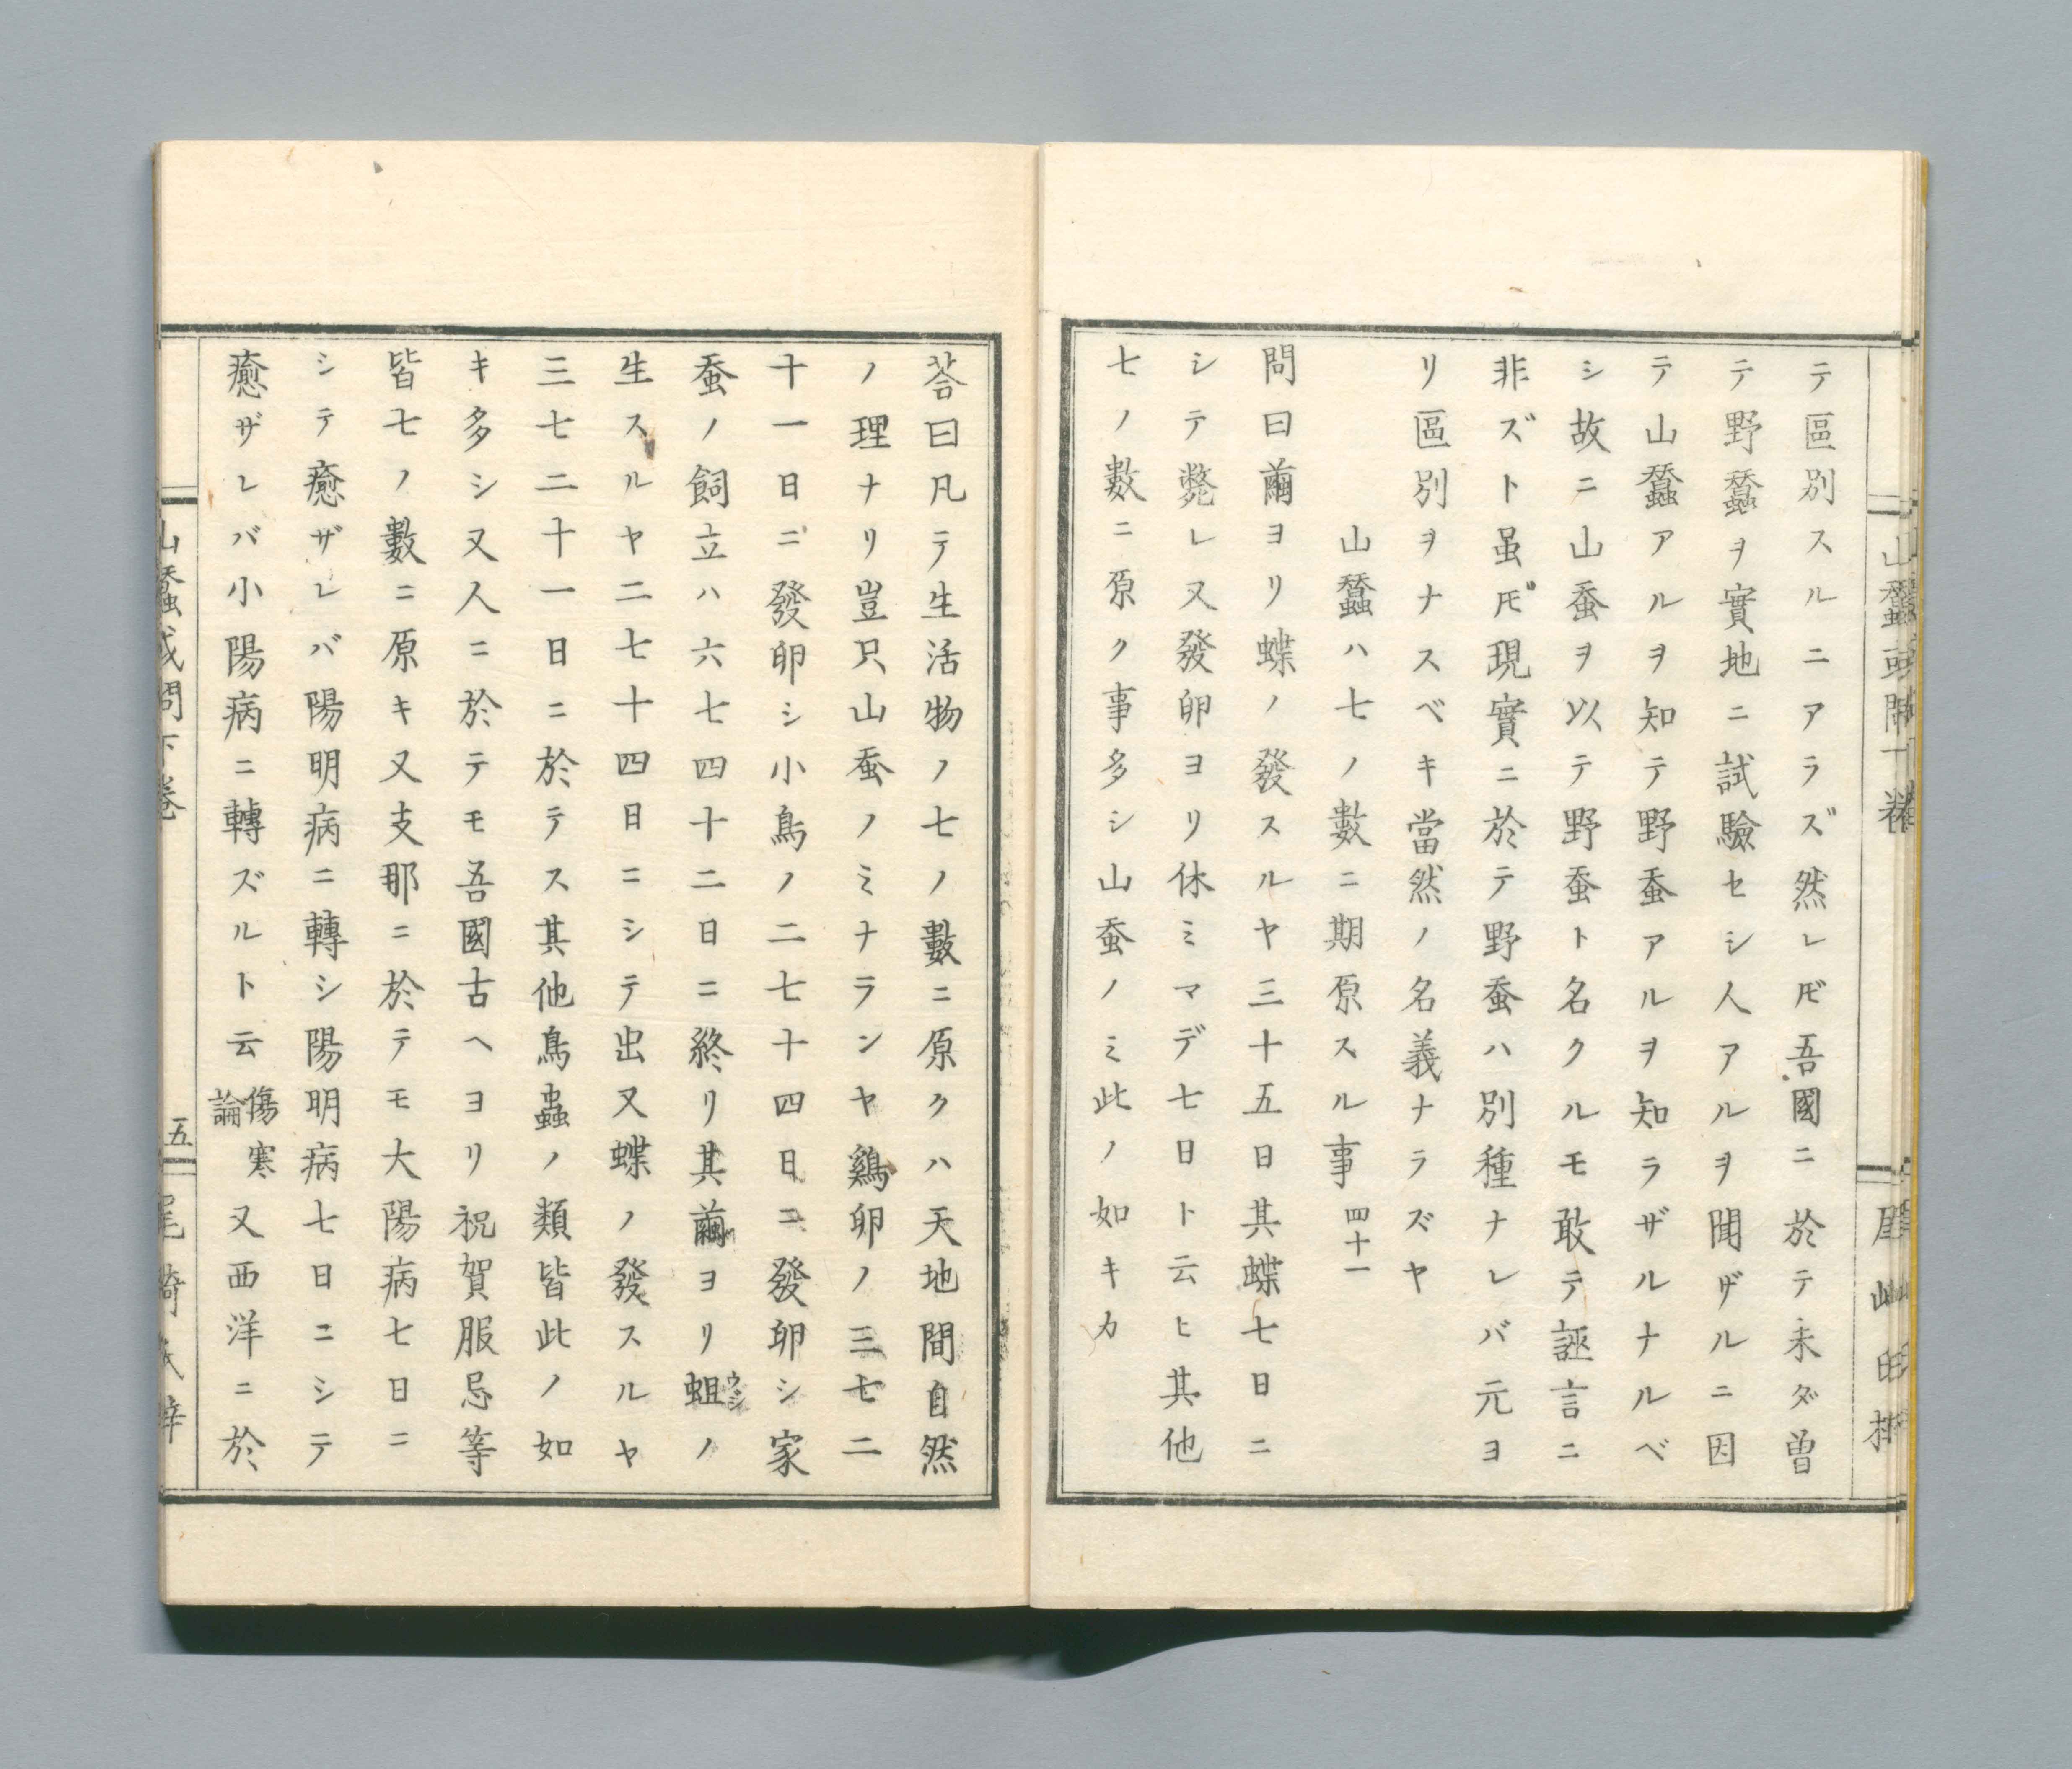 テ區別スルニアラズ然レ𪜈吾國ニ於テ未ダ曽
テ野蠶ヲ實地ニ試驗セシ人アルヲ聞ザルニ因
テ山蠶アルヲ知テ野蚕アルヲ知ラザルナルベ
シ故ニ山蚕ヲ以テ野蚕ト名クルモ敢テ誣言ニ
非ズト虽𪜈現實ニ於テ野蚕ハ別種ナレバ元ヨ
リ區別ヲナスベキ當然ノ名義ナラズヤ
山蠶ハ七ノ數ニ期原スル事 四十一
問曰繭ヨリ蝶ノ發スルヤ三十五日其蝶七日ニ
シテ斃レ又發卵ヨリ休ミマデ七日ト云ヒ其他
七ノ數ニ原ク事多シ山蚕ノミ此ノ如キカ
荅曰凡テ生活物ノ七ノ數ニ原クハ天地間自然
ノ理ナリ豈只山蚕ノミナランヤ鷄卵ノ三七二
十一日ニ發卵シ小鳥ノ二七十四日ニ發卵シ家
蚕ノ飼立ハ六七四十二日ニ終リ其繭ヨリ蛆ウジノ
生スルヤ二七十四日ニシテ出又蝶ノ發スルヤ
三七二十一日ニ於テス其他鳥蟲ノ類皆此ノ如
キ多シ又人ニ於テモ吾國古ヘヨリ祝賀服忌等
皆七ノ數ニ原キ又支那ニ於テモ大陽病七日ニ
シテ癒ザレバ陽明病ニ轉シ陽明病七日ニシテ
癒ザレバ小陽病ニ轉ズルト云傷寒論又西洋ニ於
山蠶或問下巻
五